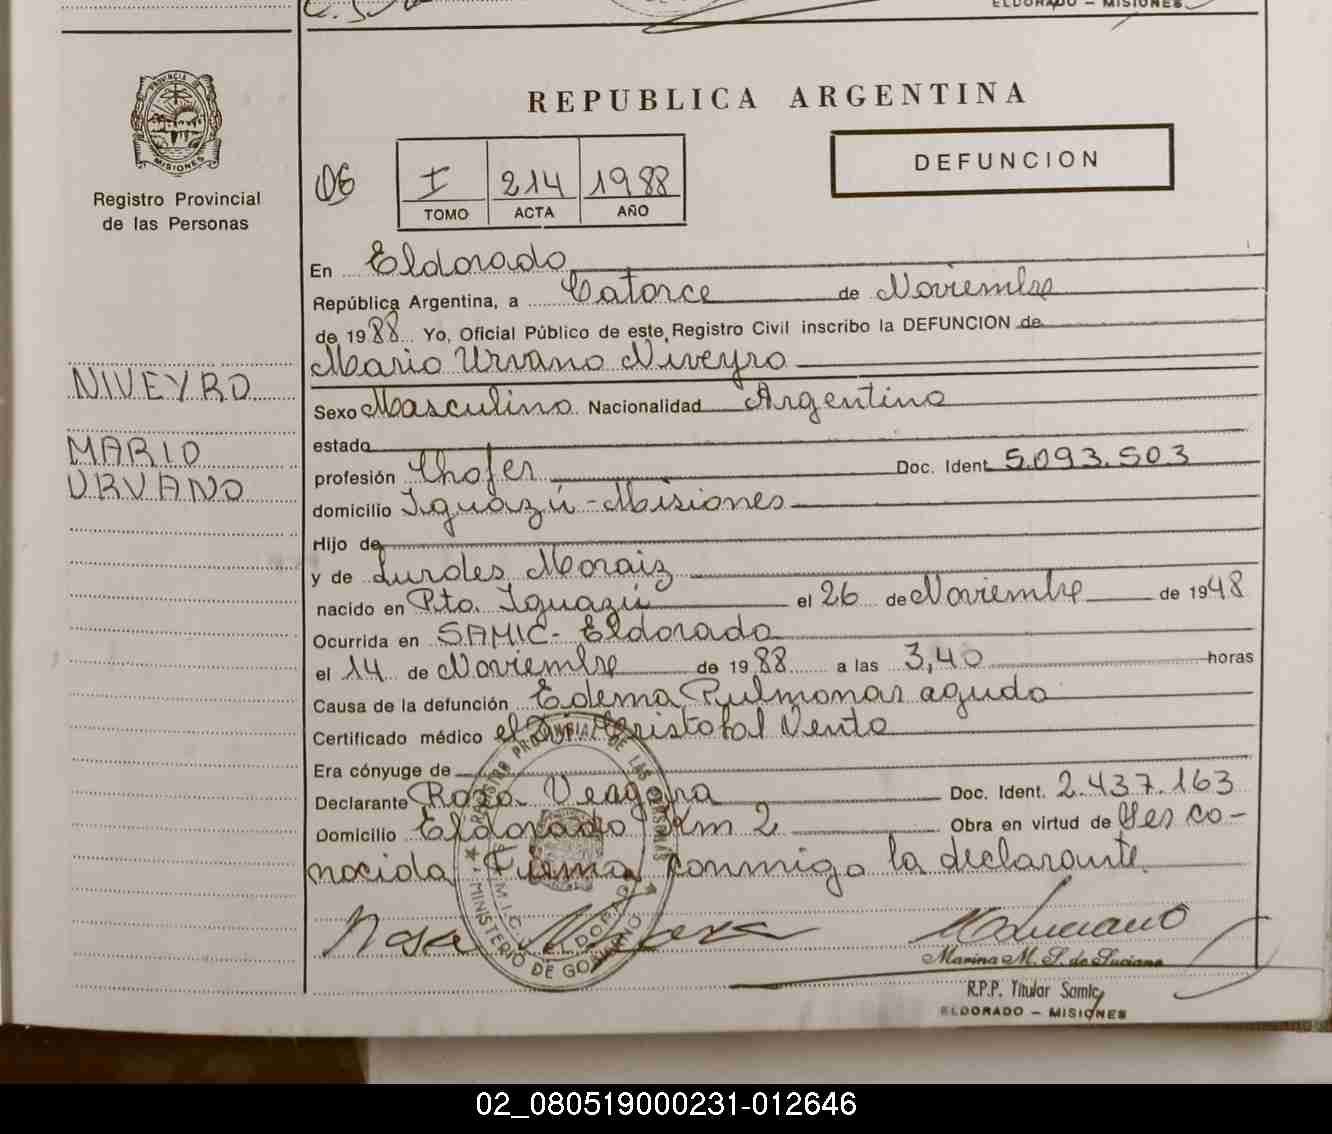 ELDORADO – MISIONES
PROVINCIA DE
MISIONES
Registro Provincial
de las Personas
REPUBLICA ARGENTINA
DEFUNCION
06
I 214 1988
TOMO ACTA AÑO
En Eldorado
República Argentina, a Catorce de Noviembre
de 1988 Yo, Oficial Público de este Registro Civil inscribo la DEFUNCION de
Mario Urvano Niveyro
NIVEYRO
MARIO
URVANO
Sexo Masculino Nacionalidad Argentina
estado
profesión Chofer Doc. Ident. 5.093.503
domicilio Iguazú - Misiones
Hijo de
y de Lurdes Moraiz
nacido en Pto. Iguazú el 26 de Noviembre de 1948
Ocurrida en SAMIC - Eldorado
el 14 de Noviembre de 1988 a las 3,40 horas
Causa de la defunción Edema Pulmonar agudo
Certificado médico el Dr. Cristobal Vento
Era cónyuge de
Declarante Rosa Doc. Ident. 2.437.163
Domicilio Eldorado Km 2 Obra en virtud de Ser co-
nocida Firma conmigo la declarante
REGISTRO PROVINCIAL DE LAS PERSONAS
MINISTERIO DE GOBIERNO
S.A.M.I.C. ELDORADO
Rosa
M Luciano
Marina M. S. de Luciano
R.P.P. Titular Samic
ELDORADO – MISIONES
02_080519000231-012646